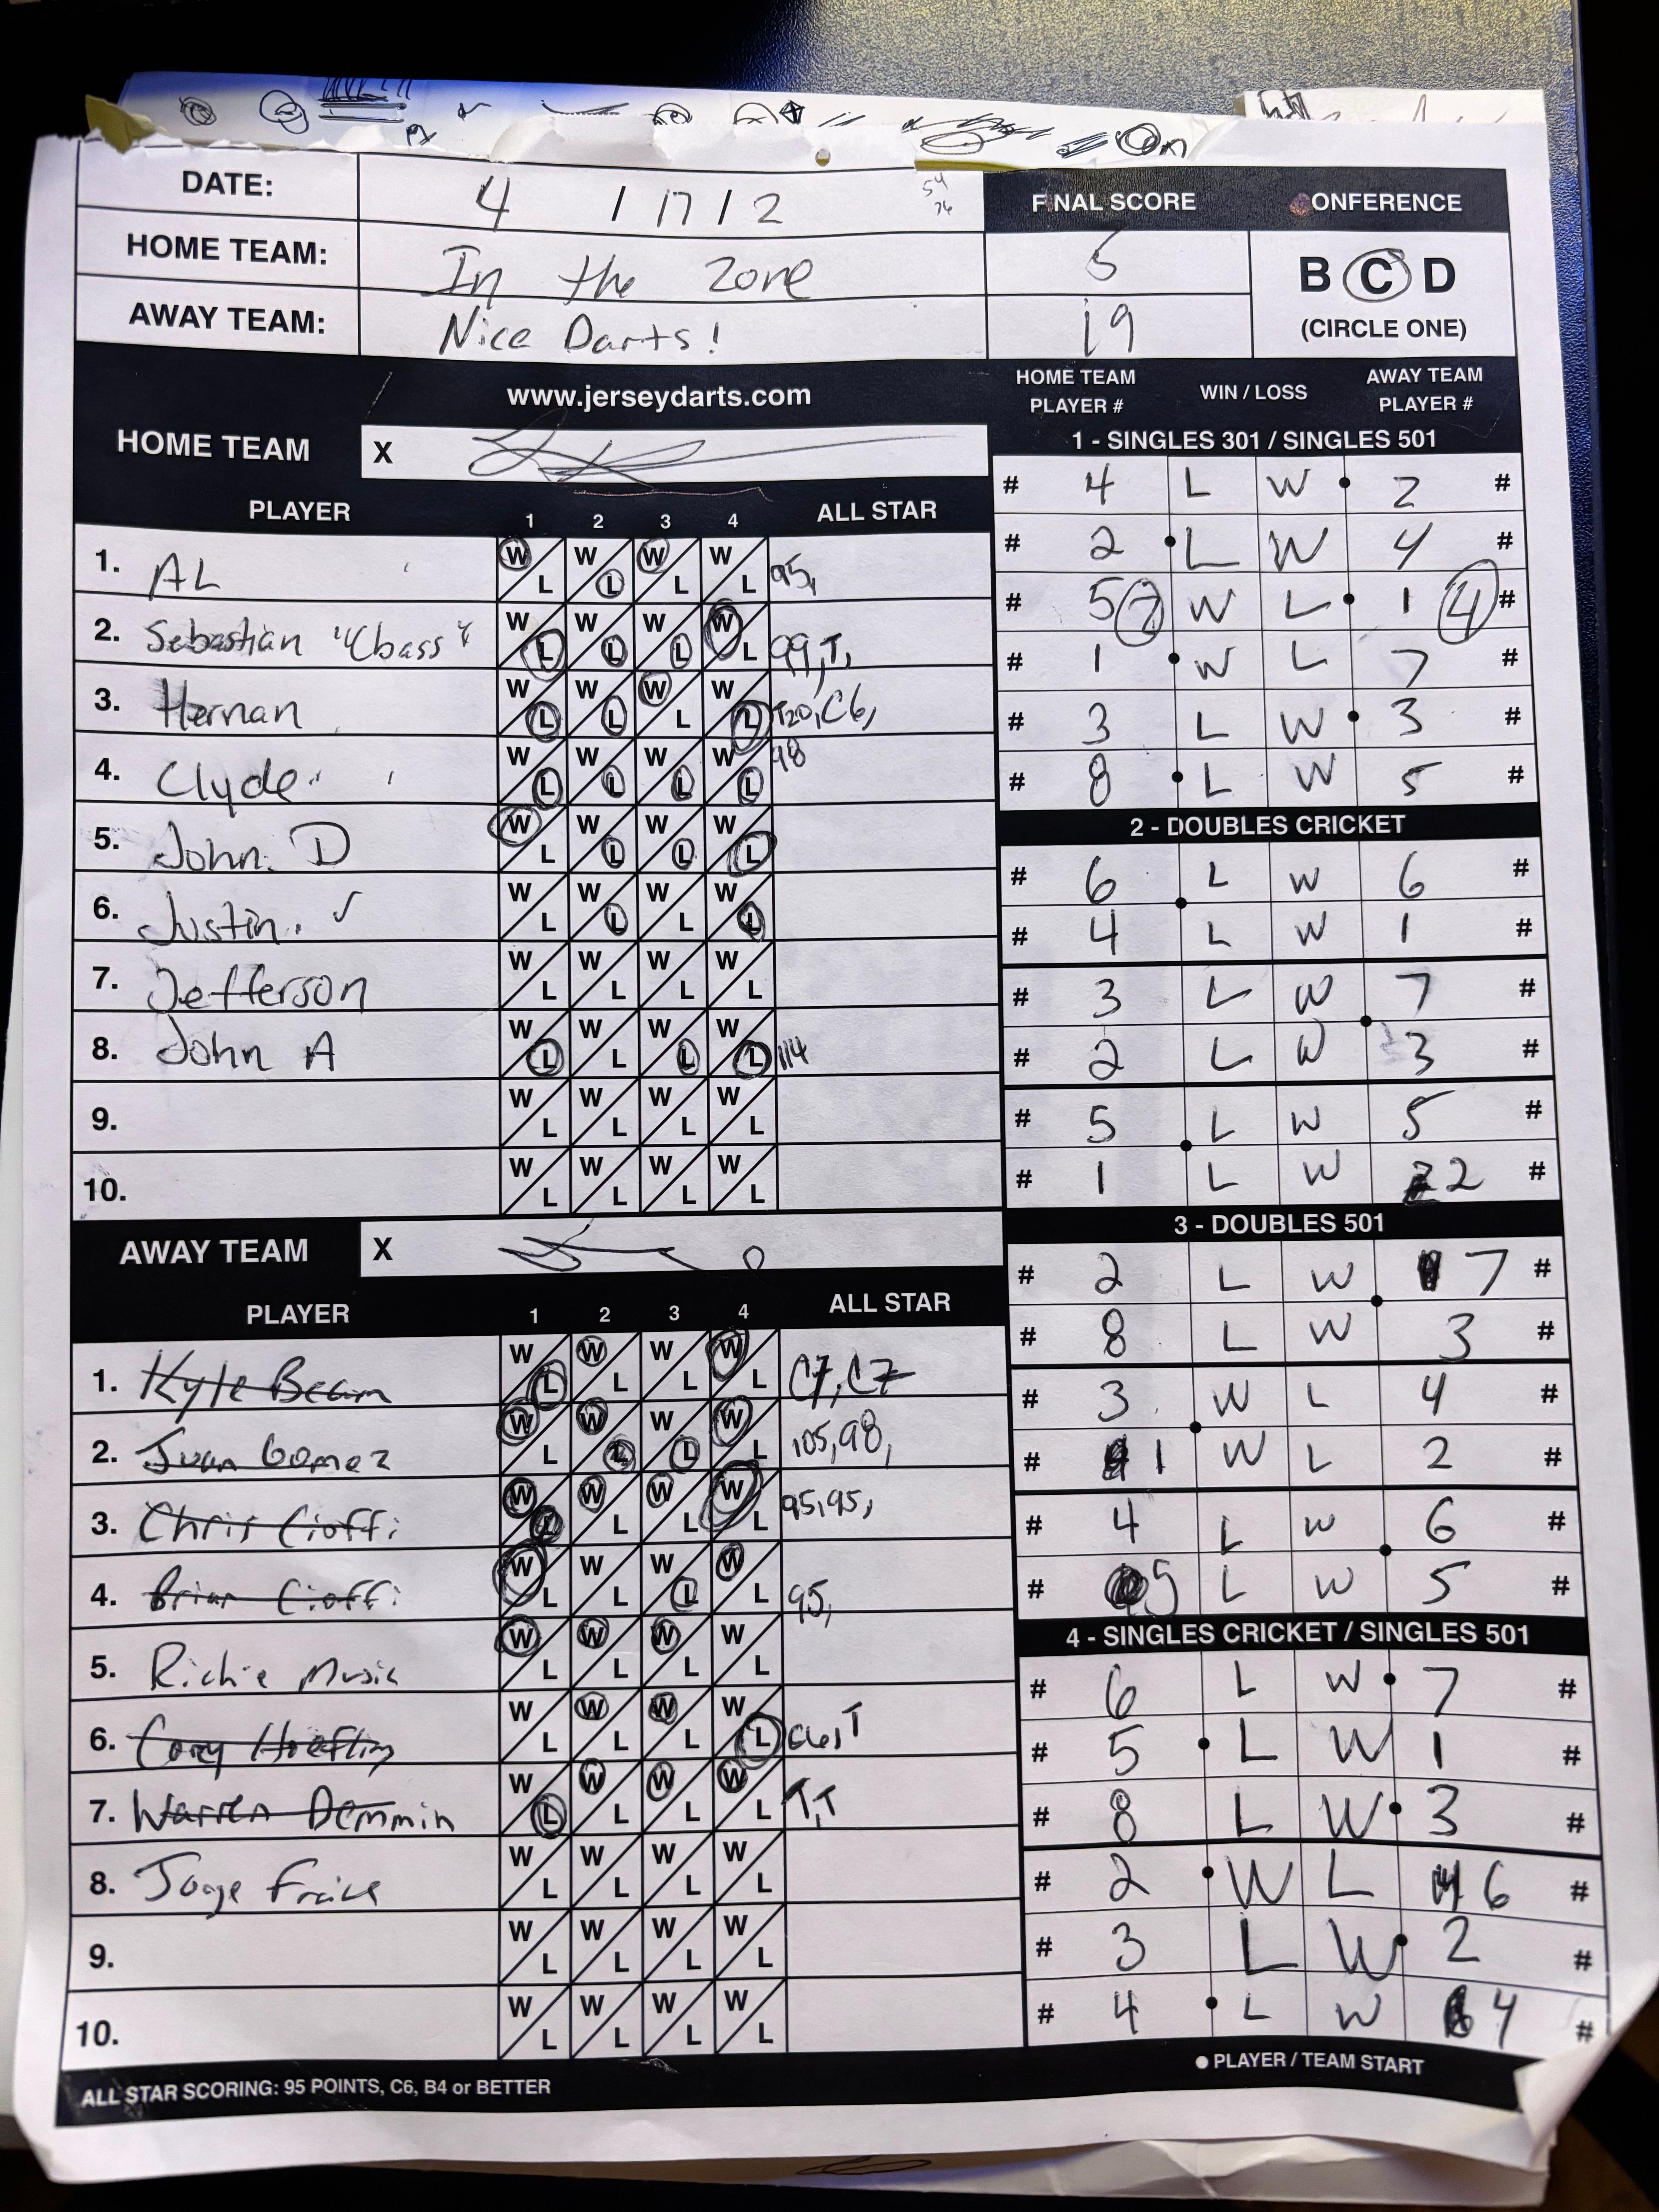 DATE: 4 / 17 / 2
54
76
FINAL SCORE CONFERENCE
HOME TEAM: In the Zone 5
B C D
(CIRCLE ONE)
AWAY TEAM: Nice Darts! 19
www.jerseydarts.com
HOME TEAM X
PLAYER 1 2 3 4 ALL STAR
1. AL W L W L W L W L 95,
2. Sebastian "Cbass" W L W L W L W L 99, T,
3. Hernan W L W L W L W L T20, C6,
4. Clyde W L W L W L W L 98
5. John D W L W L W L W L
6. Justin ✓ W L W L W L W L
7. Jefferson W L W L W L W L
8. John A W L W L W L W L 114
9. W L W L W L W L
10. W L W L W L W L
AWAY TEAM X
PLAYER 1 2 3 4 ALL STAR
1. Kyle Beam W L W L W L W L C7, C7
2. Juan Gomez W L W L W L W L 105, 98,
3. Chris Cioffi W L W L W L W L 95, 95,
4. Brian Cioffi W L W L W L W L 95,
5. Richie Music W L W L W L W L
6. Corey W L W L W L W L C6, T
7. Warren Demmin W L W L W L W L T, T
8. W L W L W L W L
9. W L W L W L W L
10. W L W L W L W L
ALL STAR SCORING: 95 POINTS, C6, B4 or BETTER
HOME TEAM PLAYER # WIN / LOSS AWAY TEAM PLAYER #
1 - SINGLES 301 / SINGLES 501
# 4 L W 2 #
# 2 L W 4 #
# 5 7 W L 1 4 #
# 1 W L 7 #
# 3 L W 3 #
# 8 L W 5 #
2 - DOUBLES CRICKET
# 6 L W 6 #
# 4 L W 1 #
# 3 L W 7 #
# 2 L W 3 #
# 5 L W 5 #
# 1 L W 2 #
3 - DOUBLES 501
# 2 L W 7 #
# 8 L W 3 #
# 3 W L 4 #
# 1 W L 2 #
# 4 L W 6 #
# 5 L W 5 #
4 - SINGLES CRICKET / SINGLES 501
# 6 L W 7 #
# 5 L W 1 #
# 8 L W 3 #
# 2 W L 6 #
# 3 L W 2 #
# 4 L W 4 #
● PLAYER / TEAM START